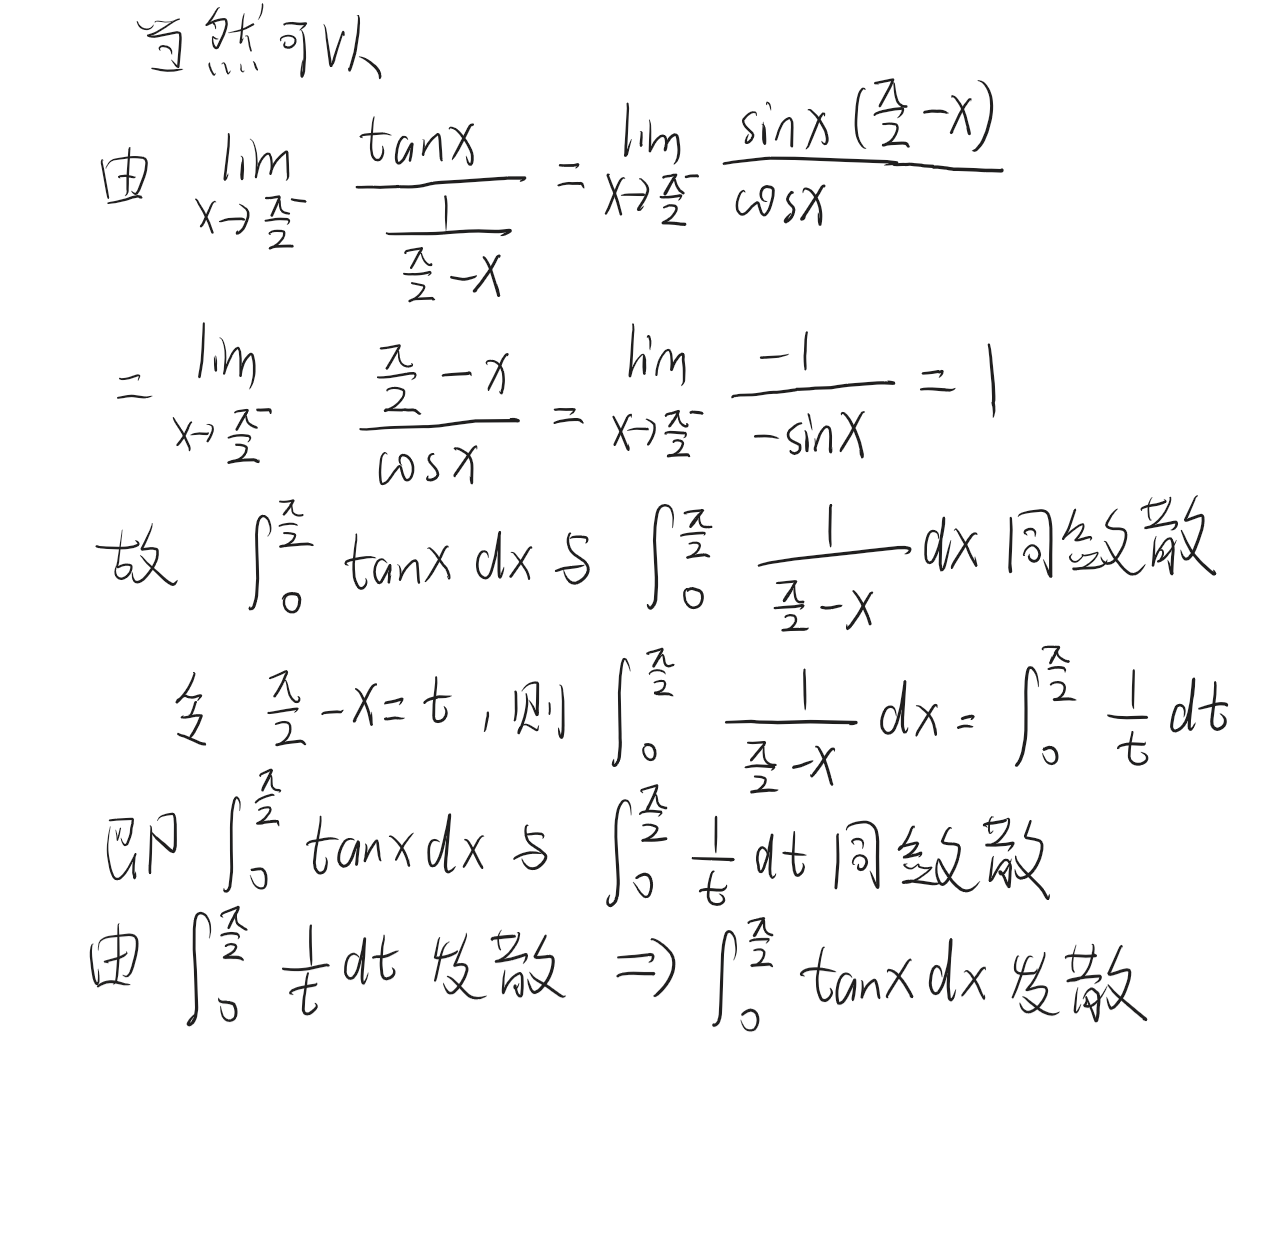 当然可以
由 $\lim_{x \to \frac{\pi}{2}^-} \frac{\tan x}{\frac{1}{\frac{\pi}{2} - x}} = \lim_{x \to \frac{\pi}{2}^-} \frac{\sin x (\frac{\pi}{2} - x)}{\cos x}$
$= \lim_{x \to \frac{\pi}{2}^-} \frac{\frac{\pi}{2} - x}{\cos x} = \lim_{x \to \frac{\pi}{2}^-} \frac{-1}{-\sin x} = 1$
故 $\int_0^{\frac{\pi}{2}} \tan x \, dx$ 与 $\int_0^{\frac{\pi}{2}} \frac{1}{\frac{\pi}{2} - x} dx$ 同敛散
令 $\frac{\pi}{2} - x = t$ , 则 $\int_0^{\frac{\pi}{2}} \frac{1}{\frac{\pi}{2} - x} dx = \int_0^{\frac{\pi}{2}} \frac{1}{t} dt$
即 $\int_0^{\frac{\pi}{2}} \tan x \, dx$ 与 $\int_0^{\frac{\pi}{2}} \frac{1}{t} dt$ 同敛散
由 $\int_0^{\frac{\pi}{2}} \frac{1}{t} dt$ 发散 $\Rightarrow \int_0^{\frac{\pi}{2}} \tan x \, dx$ 发散